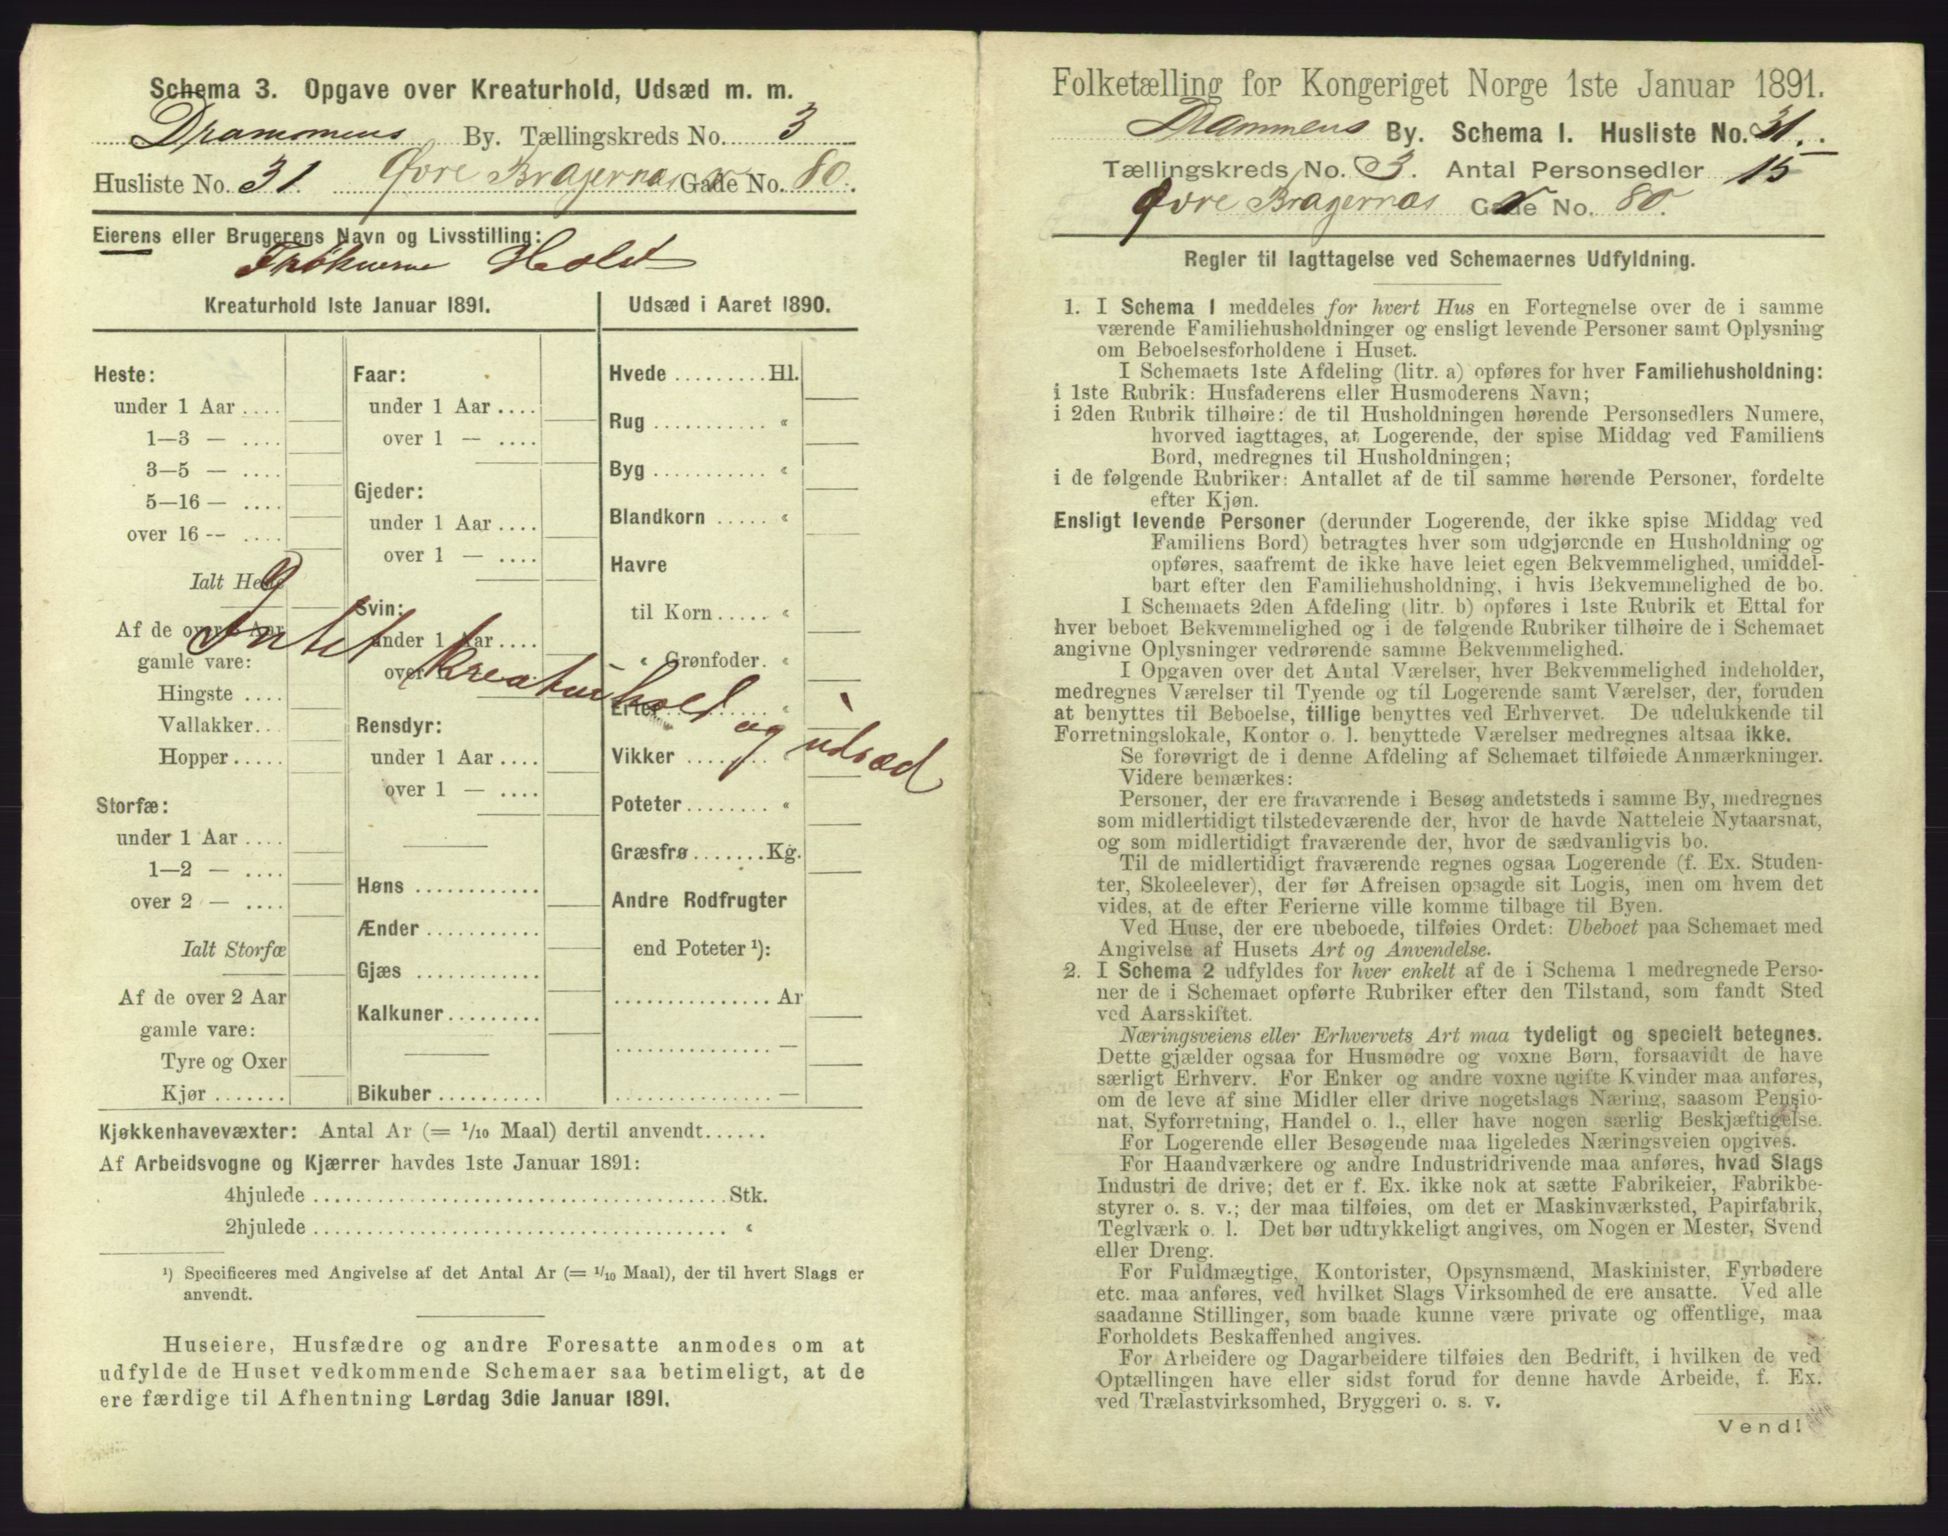 Schema 3. Opgave over Kreaturhold, Udsæd m. m.
Drammens By. Tællingskreds No. 3
Husliste No. 31. Øvre Bragernæs Gade No. 80.
Eierens eller Brugerens Navn og Livsstilling:
Frøknerne Holst
Kreaturhold 1ste Januar 1891.
Heste:
under 1 Aar ....
1—3 — ....
3—5 — ....
5—16 — ....
over 16 -- ....
Ialt Heste
Af de over 5 Aar
gamle vare:
Hingste ....
Vallakker..
Hopper .....
Storfæ:
under 1 Aar ....
1—2 — ....
over 2 — ....
Ialt Storfæ
Af de over 2 Aar
gamle vare:
Tyre og Oxer
Kjør .......
Faar:
under 1 Aar ....
over 1 — ....
Gjeder:
under 1 Aar ....
over 1 — ....
Svin:
under 1 Aar ....
over 1
Rensdyr:
under 1 Aar ....
over 1 — ....
Høns ............
Ænder ...........
Gjæs ............
Kalkuner.........
Bikuber ..........
Udsæd i Aaret 1890.
Hvede .........Hl.
Rug ............ «
Byg ............ «
Blandkorn ...... «
Havre
til Korn ..... «
« Grønfoder. «
Erter .......... «
Vikker ........
Poteter ........ «
Græsfrø .......Kg.
Andre Rodfrugter
end Poteter ¹):
............... Ar
............... —
............... —
Intet Kreaturhold og udsæd
Kjøkkenhavevæxter: Antal Ar (= 1/10 Maal) dertil anvendt......
Af Arbeidsvogne og Kjærrer havdes 1ste Januar 1891:
4hjulede ........................................ Stk.
2hjulede ........................................ «
¹) Specificeres med Angivelse af det Antal Ar (= 1/10 Maal), der til hvert Slags er
anvendt.
Huseiere, Husfædre og andre Foresatte anmodes om at
udfylde de Huset vedkommende Schemaer saa betimeligt, at de
ere færdige til Afhentning Lørdag 3die Januar 1891.
Folketælling for Kongeriget Norge 1ste Januar 1891.
Drammens By. Schema 1. Husliste No. 31.
Tællingskreds No. 3. Antal Personsedler 15
Øvre Bragernæs Gade No. 80.
Regler til Iagttagelse ved Schemaernes Udfyldning.
1. I Schema 1 meddeles for hvert Hus en Fortegnelse over de i samme
værende Familiehusholdninger og ensligt levende Personer samt Oplysning
om Beboelsesforholdene i Huset.
I Schemaets 1ste Afdeling (litr. a) opføres for hver Familiehusholdning:
i 1ste Rubrik: Husfaderens eller Husmoderens Navn;
i 2den Rubrik tilhøire: de til Husholdningen hørende Personsedlers Numere,
hvorved iagttages, at Logerende, der spise Middag ved Familiens
Bord, medregnes til Husholdningen;
i de følgende Rubriker: Antallet af de til samme hørende Personer, fordelte
efter Kjøn.
Ensligt levende Personer (derunder Logerende, der ikke spise Middag ved
Familiens Bord) betragtes hver som udgjørende en Husholdning og
opføres, saafremt de ikke have leiet egen Bekvemmelighed, umiddel-
bart efter den Familiehusholdning, i hvis Bekvemmelighed de bo.
I Schemaets 2den Afdeling (litr. b) opføres i 1ste Rubrik et Ettal for
hver beboet Bekvemmelighed og i de følgende Rubriker tilhøire de i Schemaet
angivne Oplysninger vedrørende samme Bekvemmelighed.
I Opgaven over det Antal Værelser, hver Bekvemmelighed indeholder,
medregnes Værelser til Tyende og til Logerende samt Værelser, der, foruden
at benyttes til Beboelse, tillige benyttes ved Erhvervet. De udelukkende til
Forretningslokale, Kontor o. l. benyttede Værelser medregnes altsaa ikke.
Se forøvrigt de i denne Afdeling af Schemaet tilføiede Anmærkninger.
Videre bemærkes:
Personer, der ere fraværende i Besøg andetsteds i samme By, medregnes
som midlertidigt tilstedeværende der, hvor de havde Natteleie Nytaarsnat,
og som midlertidigt fraværende der, hvor de sædvanligvis bo.
Til de midlertidigt fraværende regnes ogsaa Logerende (f. Ex. Studen-
ter, Skoleelever), der før Afreisen opsagde sit Logis, men om hvem det
vides, at de efter Ferierne ville komme tilbage til Byen.
Ved Huse, der ere ubeboede, tilføies Ordet: Ubeboet paa Schemaet med
Angivelse af Husets Art og Anvendelse.
2. I Schema 2 udfyldes for hver enkelt af de i Schema 1 medregnede Perso-
ner de i Schemaet opførte Rubriker efter den Tilstand, som fandt Sted
ved Aarsskiftet.
Næringsveiens eller Erhvervets Art maa tydeligt og specielt betegnes.
Dette gjælder ogsaa for Husmødre og voxne Børn, forsaavidt de have
særligt Erhverv. For Enker og andre voxne ugifte Kvinder maa anføres,
om de leve af sine Midler eller drive nogetslags Næring, saasom Pensio-
nat, Syforretning, Handel o. l., eller have nogen særlig Beskjæftigelse.
For Logerende eller Besøgende maa ligeledes Næringsveien opgives.
For Haandværkere og andre Industridrivende maa anføres, hvad Slags
Industri de drive; det er f. Ex. ikke nok at sætte Fabrikeier, Fabrikbe-
styrer o. s. v.; der maa tilføies, om det er Maskinværksted, Papirfabrik,
Teglværk o. l. Det bør udtrykkeligt angives, om Nogen er Mester, Svend
eller Dreng.
For Fuldmægtige, Kontorister, Opsynsmænd, Maskinister, Fyrbødere
etc. maa anføres, ved hvilket Slags Virksomhed de ere ansatte. Ved alle
saadanne Stillinger, som baade kunne være private og offentlige, maa
Forholdets Beskaffenhed angives.
For Arbeidere og Dagarbeidere tilføies den Bedrift, i hvilken de ved
Optællingen have eller sidst forud for denne havde Arbeide, f. Ex.
ved Trælastvirksomhed, Bryggeri o. s. v.
Vend!